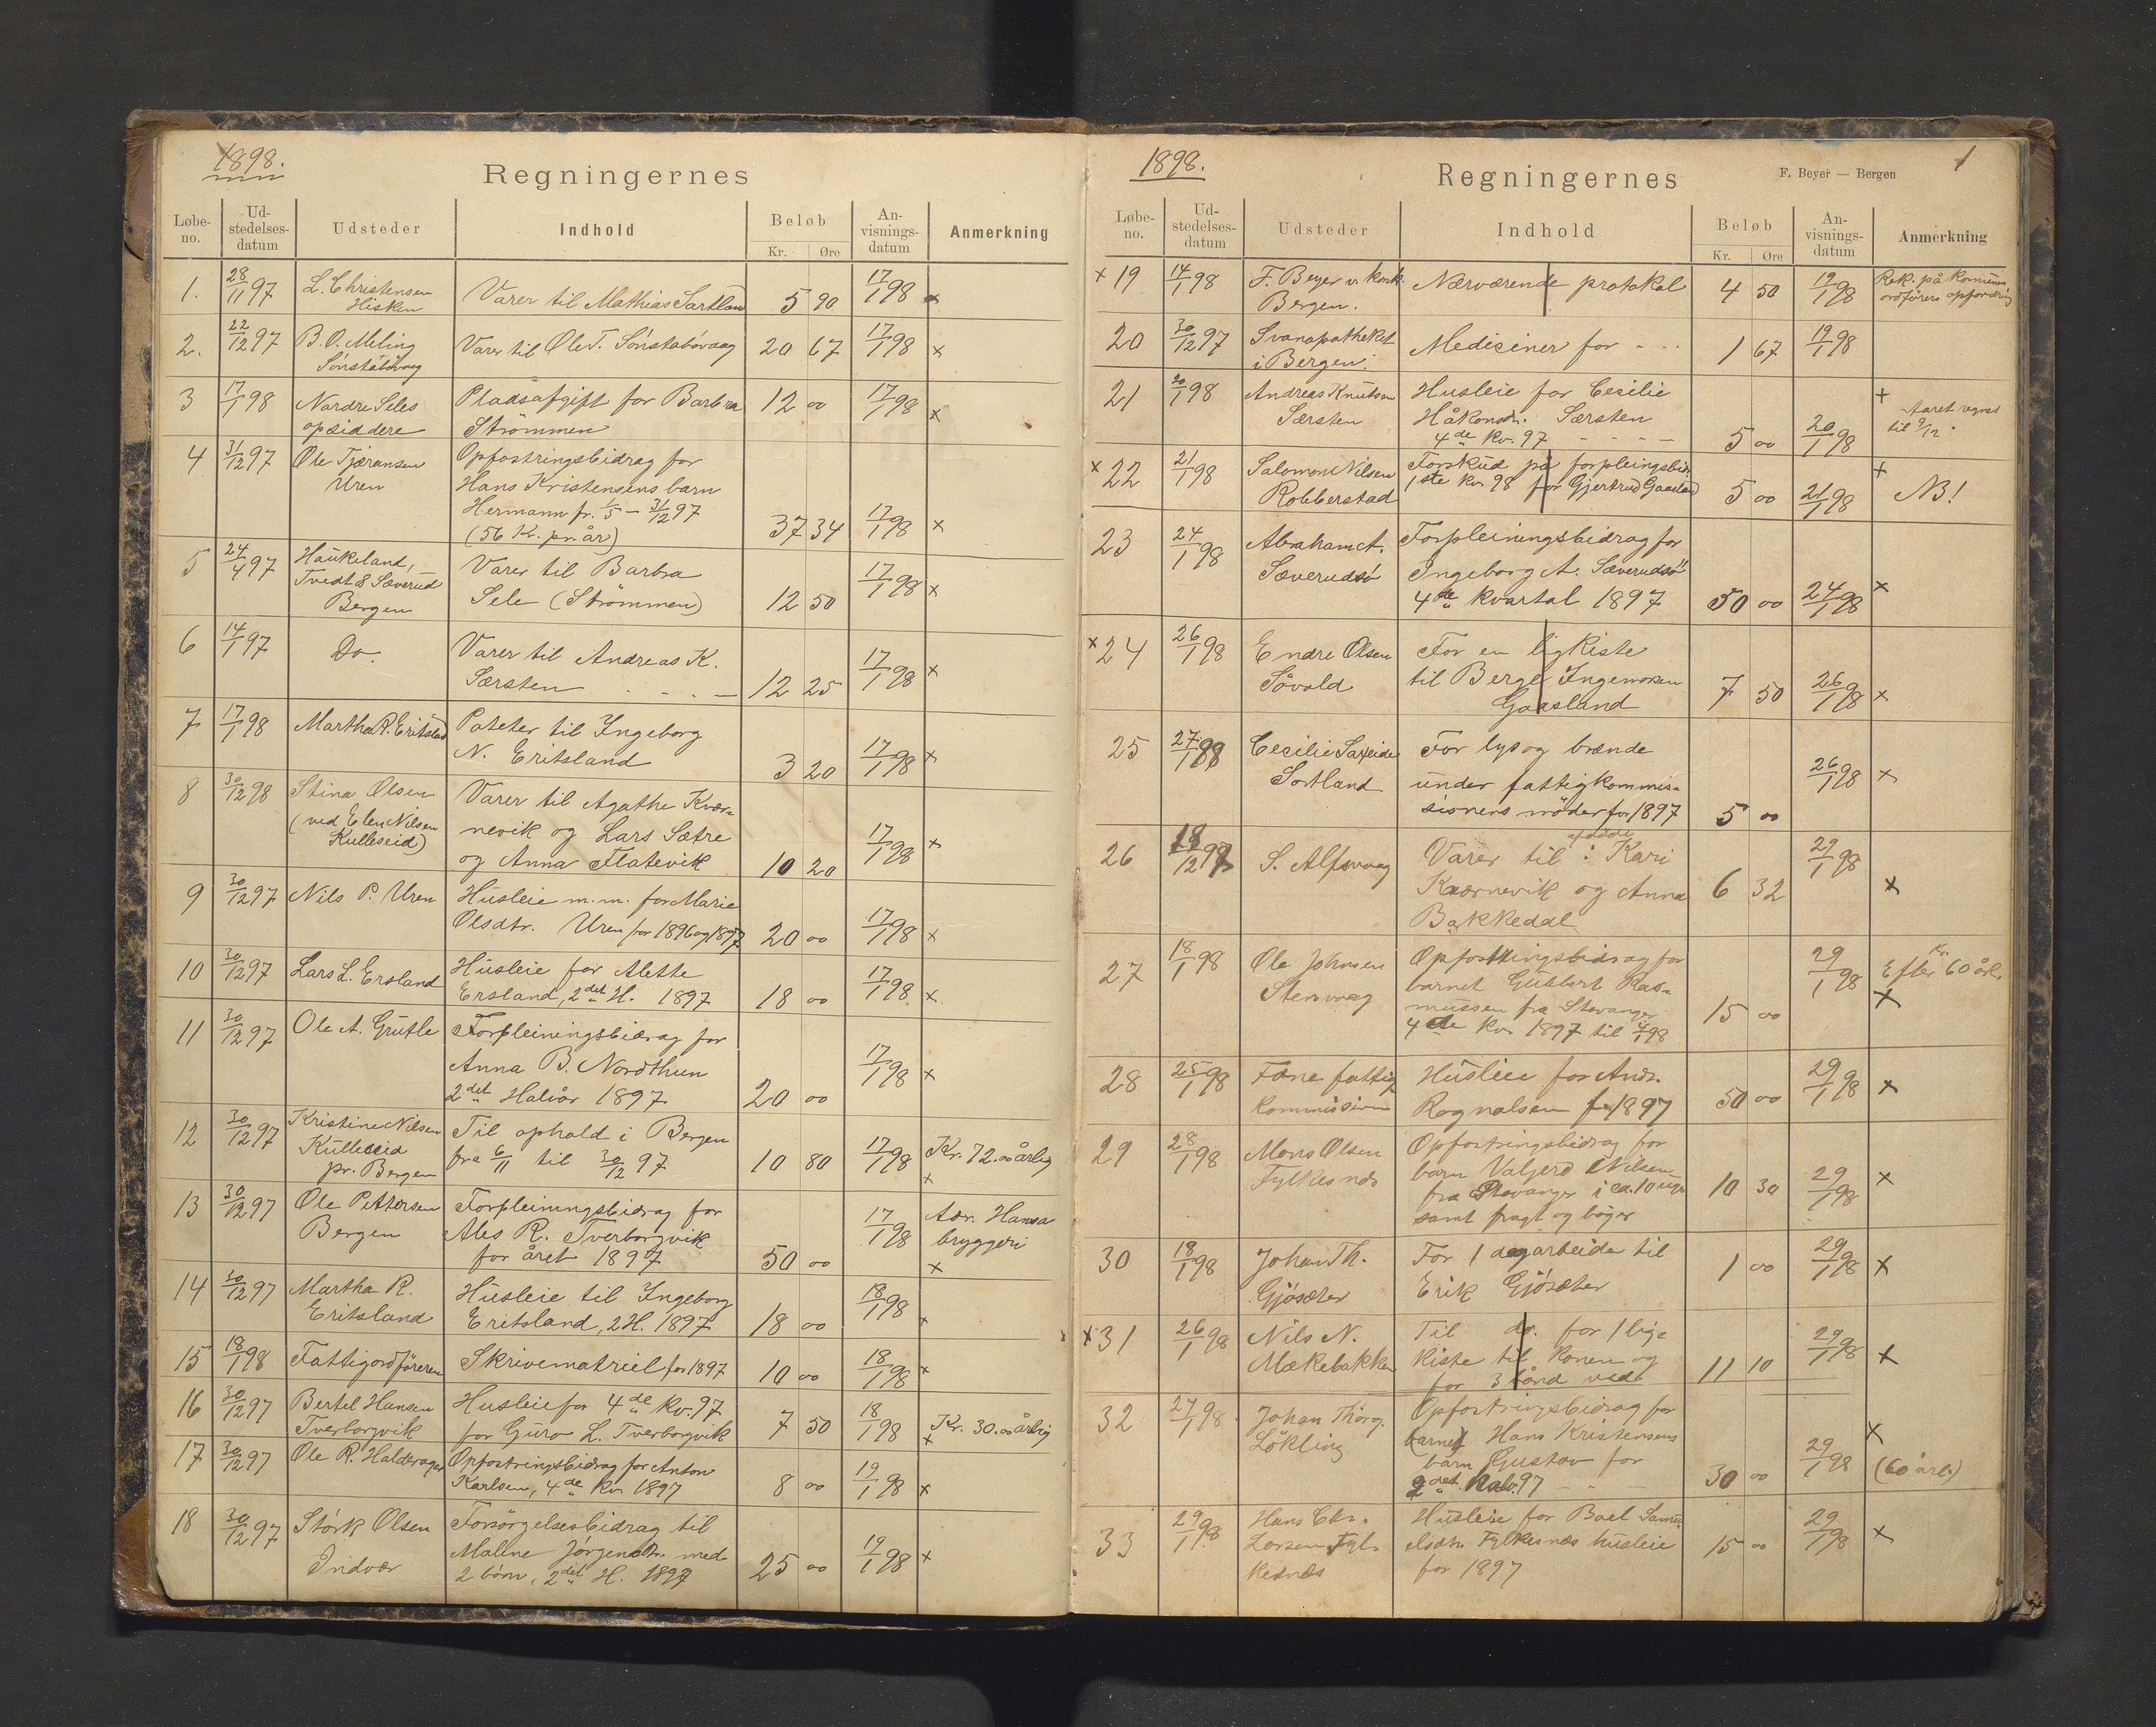 1898.
Regningernes
Løbe-no. Ud-stedelses-datum Udsteder Indhold Beløb Kr. Øre An-visnings-datum Anmerkning
1. 28/11 97 L. Christensen Varer til Mathias Sartland 5 90 17/1 98 x
Hisken
2. 22/12 97 B. O. Meling Varer til Ole T. Sönstabövaag 20 67 17/1 98 x
Sönstabövaag
3 17/1 98 Nordre Seles Pladsafgift for Barbra 12 00 17/1 98 x
opsiddere Strömmen
4 31/12 97 Ole Tjæransen Opfostringsbidrag for
Uren Hans Kristensens barn
Hermann fr. 1/5 - 31/12 97
(56 Kr. pr. år) 37 34 17/1 98 x
5 24/4 97 Haukeland, Varer til Barbra
Tvedt & Sæverud Sele (Strömmen) 12 50 17/1 98 x
Bergen
6 14/1 97 Do. Varer til Andreas K.
Særsten 12 25 17/1 98 x
7 17/1 98 Martha R. Eritsland Poteter til Ingeborg
N. Eritsland 3 20 17/1 98 x
8 30/12 98 Stina Olsen Varer til Agathe Kvær-
(ved Elen Nilsen nevik og Lars Sætre
Kulleseid) og Anna Flatevik 10 20 17/1 98 x
9 30/12 97 Nils P. Uren Husleie m.m. for Marie
Olsdtr. Uren for 1896 og 1897 20 00 17/1 98 x
10 30/12 97 Lars L. Ersland Husleie for Alette
Ersland, 2det H. 1897 18 00 17/1 98 x
11 30/12 97 Ole A. Grutle Forpleiningsbidrag for
Anna B. Nordthun
2det Halvår 1897 20 00 17/1 98 x
12 30/12 97 Kristine Nilsen Til ophold i Bergen
Kulleseid fra 6/11 til 30/12 97 10 80 17/1 98 Kr. 72.00 årlig
pr. Bergen x
13 30/12 97 Ole Pettersen Forpleiningsbidrag for
Bergen Ales R. Tverborgvik 17/1 98 Adr. Hansa
for året 1897 50 00 bryggeri
x
14 30/12 97 Martha R. Husleie til Ingeborg
Eritsland Eritsland, 2 H. 1897 18 00 18/1 98 x
15 18/1 98 Fattigordföreren Skrivematriel for 1897 10 00 18/1 98 x
16 30/12 97 Bertel Hansen Husleie for 4de Kv. 97
Tverborgvik for Guro L. Tverborgvik 7 50 18/1 98 Kr. 30.00 årlig
x
17 30/12 97 Ole R. Halderager Opfostringsbidrag for Anton
Karlsen, 4de Kv. 1897 8 00 19/1 98 x
18 30/12 97 Störk Olsen Forsörgelsesbidrag til
Indvær Maline Jörgensdtr. med
2 börn, 2det H. 1897 25 00 19/1 98 x
1898.
Regningernes
F. Beyer — Bergen
1
Løbe-no. Ud-stedelses-datum Udsteder Indhold Beløb Kr. Øre An-visnings-datum Anmerkning
x 19 14/1 98 F. Beyer Nærværende protokol 4 50 19/1 98 Rek. på kommune
Bergen. ordförers opfordring
20 30/12 97 Svanapotheket Medisiner for - - - 1 67 19/1 98
i Bergen.
21 20/1 98 Andreas Knutsen Husleie for Cecilie x
Særsten Håkonsdr. Særsten Aaret regnes
4de Kv. 97 5 00 20/1 98 til 9/12.
x 22 21/1 98 Salomon Nilsen Forskud på forpleingsbidr. x
Robberstad 1ste Kv. 98 for Gjertrud Gaasland 5 00 21/1 98 NB!
23 24/1 98 Abraham A. Forpleiningsbidrag for
Sæverudsö Ingeborg A. Sæverudsö
4de kvartal 1897 50 00 24/1 98 x
x 24 26/1 98 Endre Olsen For en ligkiste
Såvold til Berge Ingemosen 7 50 26/1 98 x
Gaasland
25 27/1 98 Cecilie Saxeide For lys og brænde
Sortland under fattigkommis- 26/1 98 x
sionens möder for 1897 5 00
26 18/12 97 S. Alfsvaag Varer til: afdöde Kari 29/1 98
Kværnevik og Anna 6 32 x
Bakkedal
27 18/1 98 Ole Johnsen Opfostringsbidrag for 29/1 98 Efter Kr. 60 årl.
Stenvaag barnet Gubbert Ras- x
mussen fra Stavanger 15 00
4de Kv. 1897 til 4/1 98
28 25/1 98 Fane fattig- Husleie for Andr. 29/1 98 x
kommission Rognalsen for 1897 50 00
29 28/1 98 Mons Olsen Opfostringsbidrag for
Fylkesnes barn Valgerd Nilsen
fra Stavanger i ca. 10 uger 10 30 29/1 98 x
samt fragt og bøger
30 18/1 98 Johan Th. For 1 dagarbeide til 1 00 29/1 98 x
Gjösæter Erik Gjösæter
x 31 26/1 98 Nils N. Til do. for 1 lig-
Mækebakken kiste til konen og 11 10 29/1 98 x
for 3 baand ved
32 27/1 98 Johan Thorg. Opfostringsbidrag for
Lökling barnet Hans Kristensens x
barn Gustav for
2det Halv. 97 30 00 29/1 98 (60 årl.)
33 29/1 98 Hans Chr. Husleie for Boel Samu-
Larsen Fyl- elsdtr. Fylkesnæs husleie 15 00 29/1 98 x
kesnæs for 1897